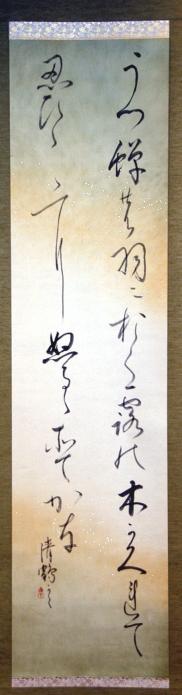 うつ蝉の羽におく露の木かくれて
忍ひ〳〵にぬるゝ袖かな
清鶴